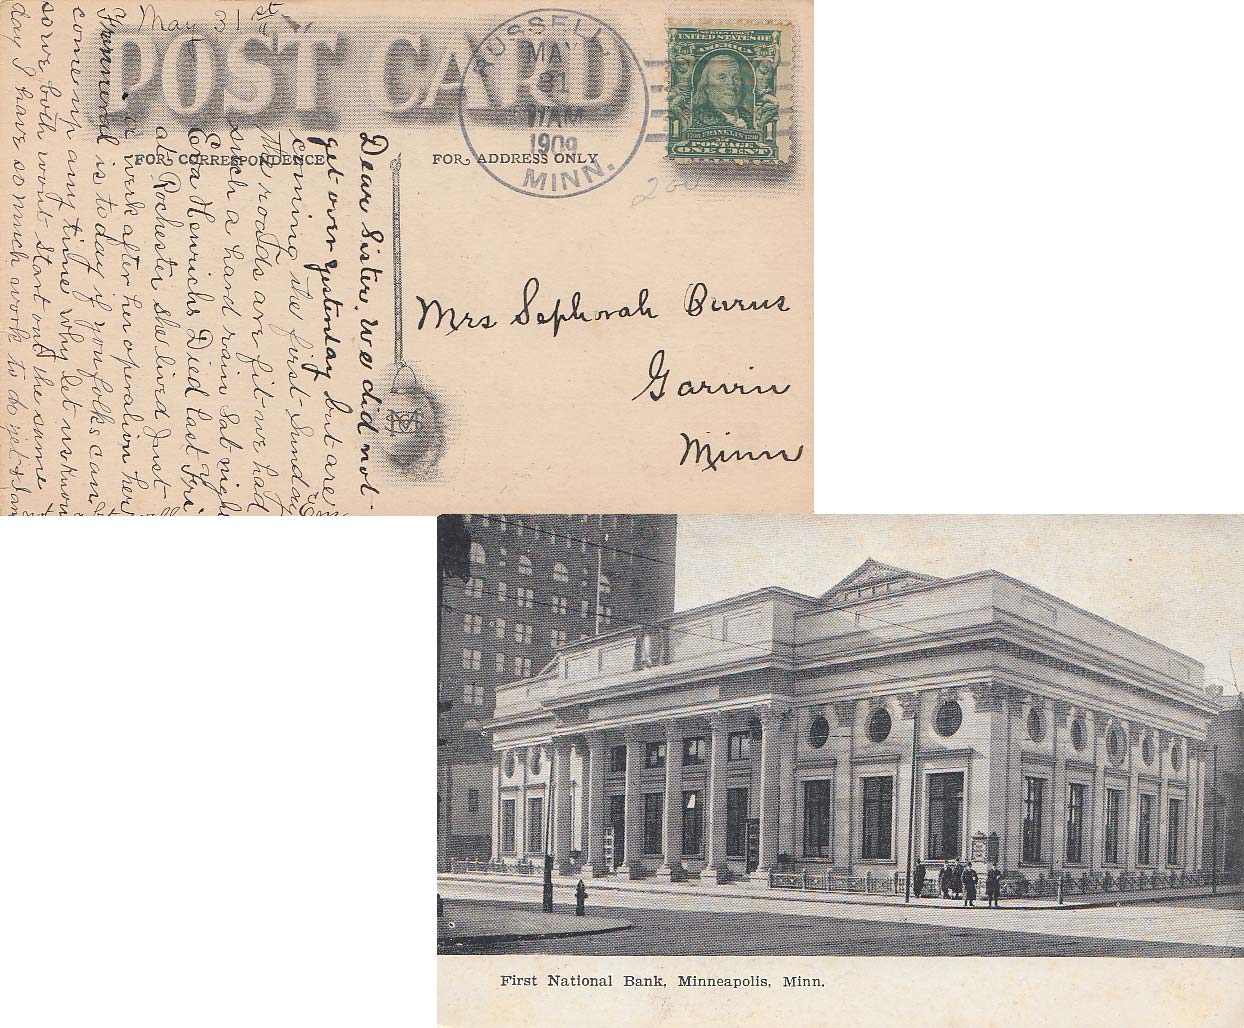 May 31st
POST CARD
RUSSELL,
MAY
31
11 AM
1909
MINN.
SERIES 1902
UNITED STATES OF
AMERICA
1 FRANKLIN 1
POSTAGE
ONE CENT
FOR CORRESPONDENCE
FOR ADDRESS ONLY
Dear Sister. We did not
get over yesterday but are
coming the first Sunday
the roads are fit we had
such a hard rain Sat night
Henrichs Died last Fri
at Rochester she lived Just
a werk after her operation her
Funneral is to day if you folks can
come up any time why let us know
so we both wont start out the same
day I have so much work to do yet
Mrs Sephorah Burns
Garvin
Minn
First National Bank, Minneapolis, Minn.